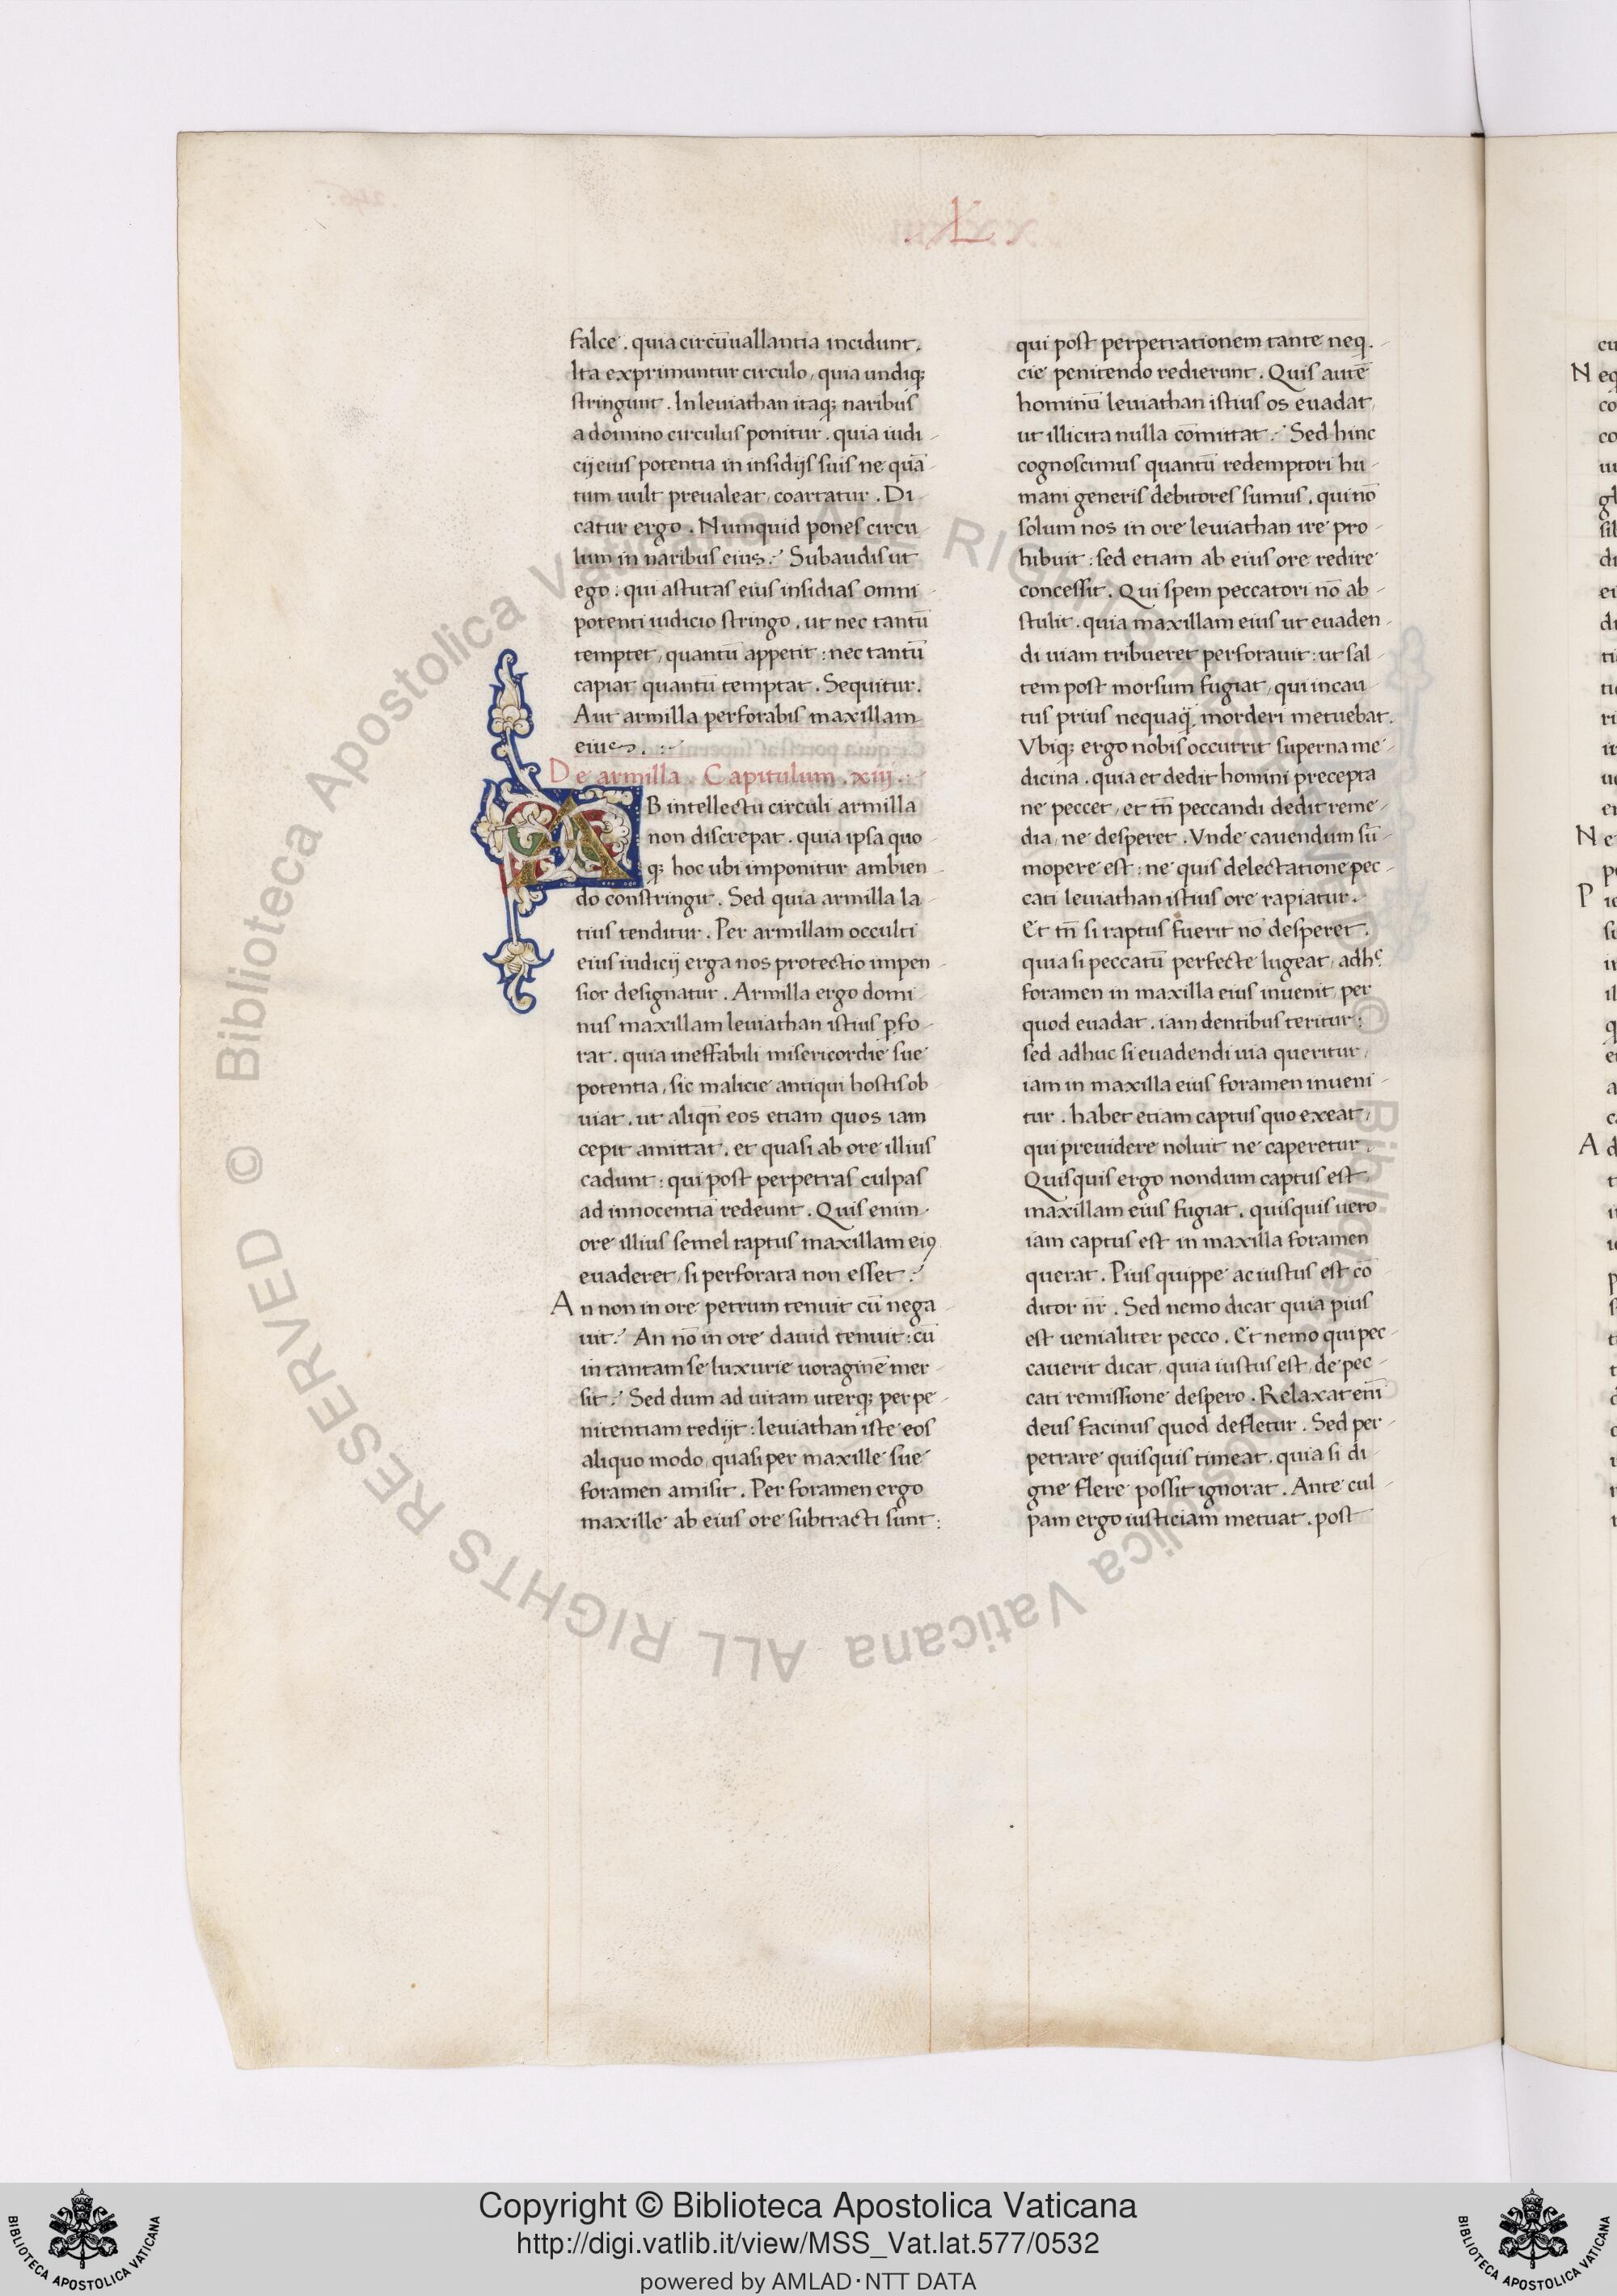 .L.
falce . quia circūuallantia incidunt .
Ita exprimuntur circulo, quia undiq;
stringunt . In leuiathan itaq; naribus
a domino circulus ponitur . quia iudi-
cij eius potentia in insidijs suis ne quā-
tum uult preualeat, coartatur . Di-
catur ergo . Numquid pones circu-
lum in naribus eius? Subaudis ut
ego : qui astutas eius insidias omni-
potenti iudicio stringo . ut nec tantū
temptet, quantū appetit : nec tantū
capiat quantū temptat . Sequitur .
Aut armilla perforabis maxillam
eius .
De armilla . Capitulum . xiij .
AB intellectu circuli armilla
non discrepat . quia ipsa quo-
q; hoc ubi imponitur ambien-
do constringit . Sed quia armilla la-
tius tenditur . Per armillam occulti
eius iudicij erga nos protectio impen-
sior designatur . Armilla ergo domi-
nus maxillam leuiathan istius ꝑfo-
rat . quia ineffabili misericordie sue
potentia, sic malicie antiqui hostis ob-
uiat . ut aliqn̄ eos etiam quos iam
cepit amittat . et quasi ab ore illius
cadunt : qui post perpetras culpas
ad innocentiā redeunt . Quis enim
ore illius semel raptus maxillam eiꝰ
euaderet, si perforata non esset?
An non in ore petrum tenuit cū nega-
uit? An nō in ore dauid tenuit : cū
in tantam se luxurie uoraginē mer-
sit? Sed dum ad uitam uterq; per pe-
nitentiam redijt : leuiathan iste eos
aliquo modo, quasi per maxille sue
foramen amisit . Per foramen ergo
maxille ab eius ore subtracti sunt :
qui post perpetrationem tante neq-
cie penitendo redierunt . Quis autē
hominū leuiathan istius os euadat,
ut illicita nulla cōmittat? Sed hinc
cognoscimus quantū redemptori hu-
mani generis debitores sumus . qui nō
solum nos in ore leuiathan ire pro-
hibuit : sed etiam ab eius ore redire
concessit . Qui spem peccatori nō ab-
stulit . quia maxillam eius ut euaden-
di uiam tribueret perforauit : ut sal-
tem post morsum fugiat, qui incau-
tus prius nequaq̄ morderi metuebat .
Vbiq; ergo nobis occurrit superna me-
dicina . quia et dedit homini precepta
ne peccet, et tn̄ peccandi dedit reme-
dia, ne desperet . Vnde cauendum sū-
mopere est : ne quis delectatione pec-
cati leuiathan istius ore rapiatur .
Et tn̄ si raptus fuerit nō desperet .
quia si peccatū perfecte lugeat, adhᶜ
foramen in maxilla eius inuenit, per
quod euadat . iam dentibus teritur :
sed adhuc si euadendi uia queritur,
iam in maxilla eius foramen inueni-
tur . habet etiam captus quo exeat,
qui preuidere noluit ne caperetur .
Quisquis ergo nondum captus est,
maxillam eius fugiat . quisquis uero
iam captus est in maxilla foramen
querat . Pius quippe ac iustus est cō-
ditor nr̄ . Sed nemo dicat quia pius
est uenialiter pecco . Et nemo qui pec-
cauerit dicat, quia iustus est, de pec-
cati remissione despero . Relaxat enī
deus facinus quod defletur . Sed per-
petrare quisquis timeat . quia si di-
gne flere possit ignorat . Ante cul-
pam ergo iusticiam metuat . post
© Biblioteca Apostolica Vaticana ALL RIGHTS RESERVED © Biblioteca Apostolica Vaticana ALL RIGHTS RESERVED
Copyright © Biblioteca Apostolica Vaticana
http://digi.vatlib.it/view/MSS_Vat.lat.577/0532
powered by AMLAD·NTT DATA
BIBLIOTECA APOSTOLICA VATICANA
BIBLIOTECA APOSTOLICA VATICANA